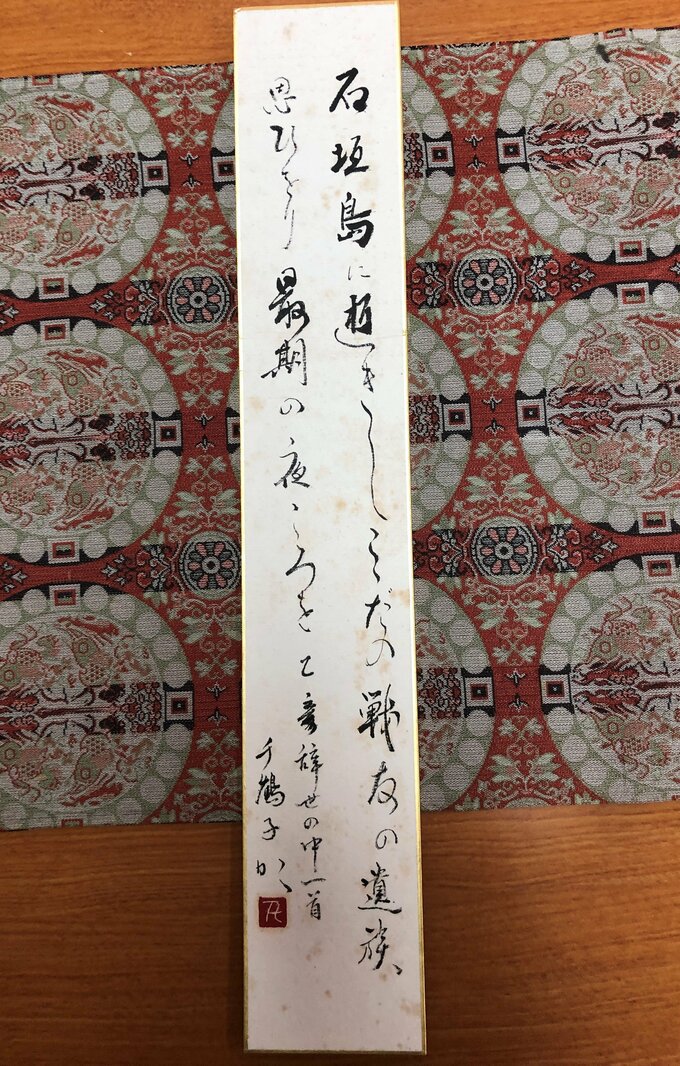 石垣島に逝きしこゝだの戦友の遺族、
思ひをり最期の夜ころを
乙彦辞世の中一首
千鶴子かく